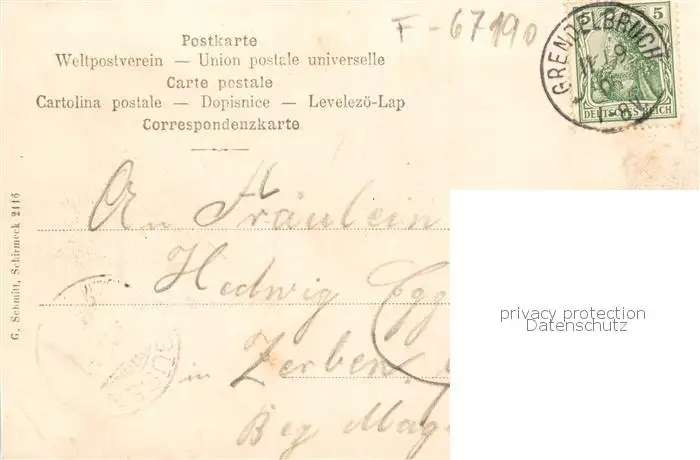 F-67190
Postkarte
Weltpostverein — Union postale universelle
Carte postale
Cartolina postale — Dopisnice — Levelező-Lap
Correspondenzkarte
5 5
DEUTSCHES REICH
GRENDELBRUCH
An Fräulein
Hedwig Egg
in Zerben
Bez Mag
G. Schmitt, Schirmeck 2116
privacy protection
Datenschutz